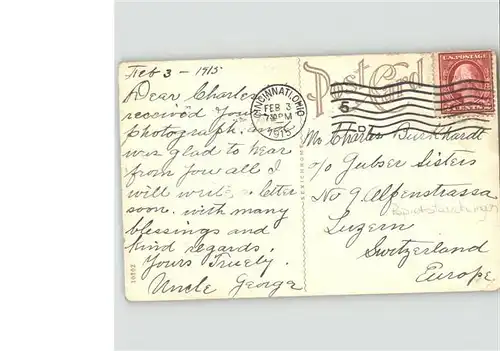 Feb 3 - 1915
Dear Charles
received Your
photograph, and
was glad to hear
from you all I
will write a letter
soon. with many
blessings and
kind regards.
Yours Truely.
Uncle George
10802
SEXICHROME
Post Card
CINCINNATI, OHIO
FEB 3
PM
1915
5
U.S. POSTAGE
CENTS
Mr Charles Burkhardt
c/o Gubser Sisters
No 9 Alpenstrassa
Luzern
Switzerland
Europe